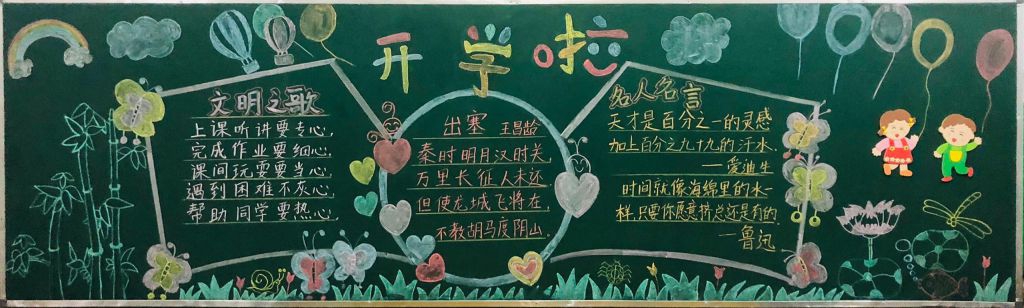 开学啦
文明之歌
上课听讲要专心,
完成作业要细心,
课间玩耍要当心,
遇到困难不灰心,
帮助同学要热心,
出塞 王昌龄
秦时明月汉时关,
万里长征人未还
但使龙城飞将在,
不教胡马度阴山.
名人名言
天才是百分之一的灵感
加上百分之九十九的汗水.
—爱迪生
时间就像海绵里的水一
样,只要你愿意挤总还是有的
—鲁迅.